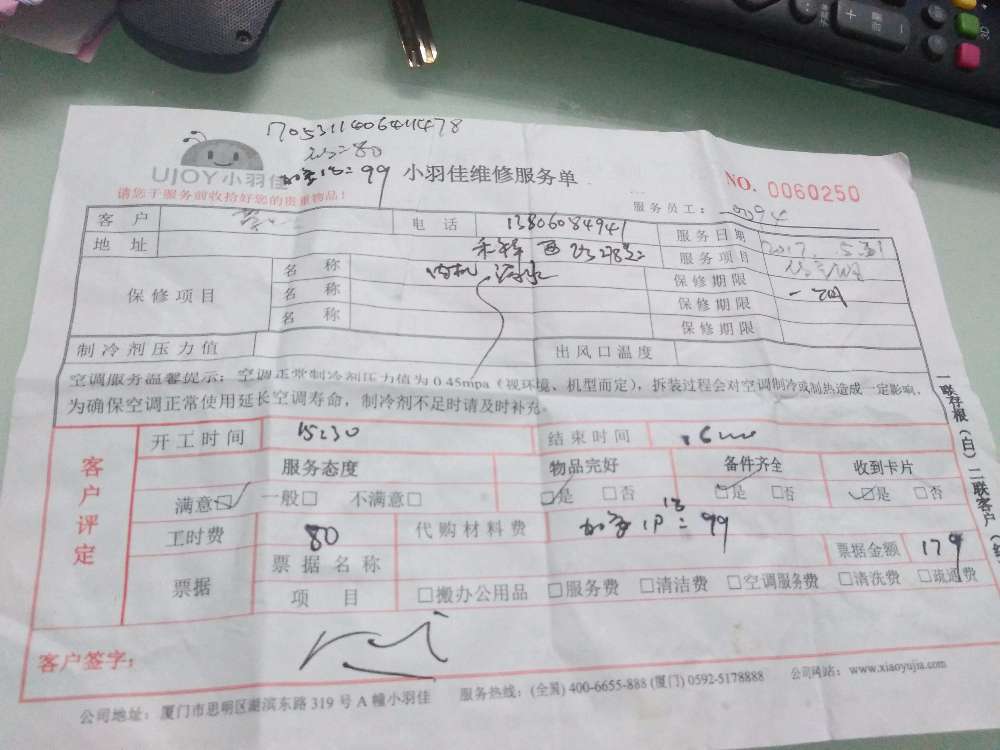 1705311406411478
=80
UJOY小羽佳 =99 小羽佳维修服务单 NO. 0060250
请您于服务前收拾好您的贵重物品! 服务员工: 0094
客户 电话 13806084941 服务日期 2017.5.31
地址 服务项目
保修项目 名称 内机 保修期限 一周
名称 保修期限
名称 保修期限
制冷剂压力值 出风口温度
空调服务温馨提示:空调正常制冷剂压力值为0.45mpa(视环境、机型而定),拆装过程会对空调制冷或制热造成一定影响,
为确保空调正常使用延长空调寿命,制冷剂不足时请及时补充。
客户评定
开工时间 15:30 结束时间
服务态度 物品完好 备件齐全 收到卡片
满意☑ 一般□ 不满意□ ☑是 □否 ☑是 □否 ☑是 □否
工时费 80 代购材料费 =99
票据 票据名称 票据金额 179
项目 □搬办公用品 □服务费 □清洁费 □空调服务费 □清洗费 □疏通费
客户签字:
公司地址:厦门市思明区湖滨东路319号A幢小羽佳 服务热线:(全国)400-6655-888(厦门)0592-5178888 公司网站:www.xiaoyujia.com
一联存根(白)二联客户(
3D